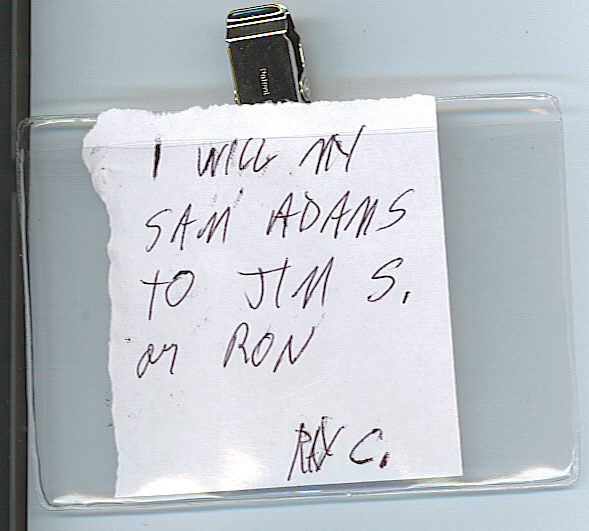 I WILL MY
SAM ADAMS
TO JIM S.
or RON
RAY C.